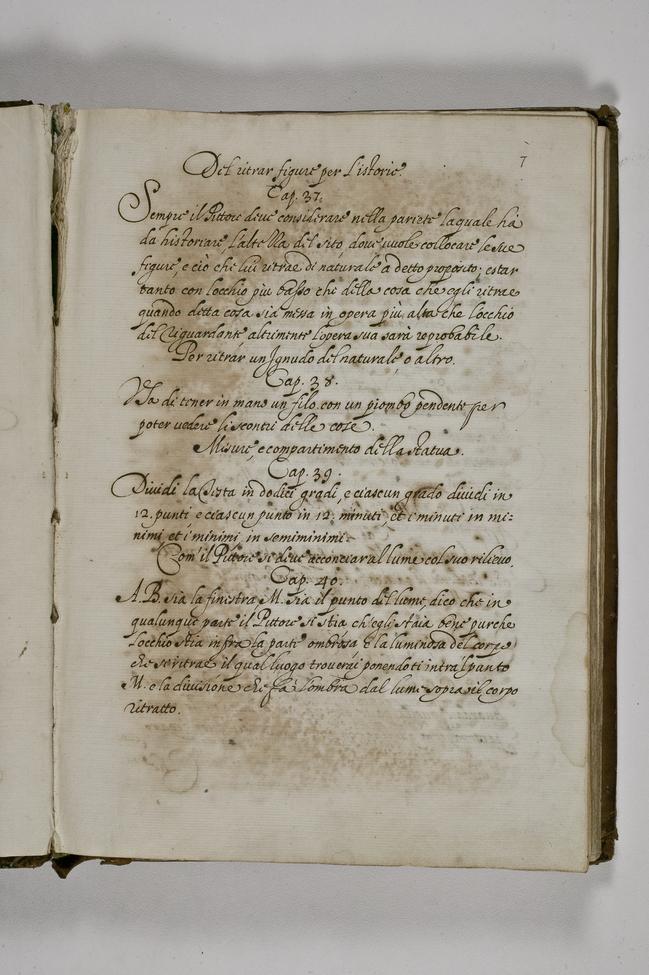 7
Del ritrar figure per l'istorie.
Cap. 37.
Sempre il Pittore deue considerare nella pariete laquale hà
da historiare, l'altezza del sito doue uuole collocare le sue
figure, e ciò che lui ritrae di naturale a detto proposito; e star
tanto con l'occhio più basso che della cosa che egli ritrae
quando detta cosa sia messa in opera più alta che l'occhio
del riguardante, altrimente l'opera sua sarà reprobabile.
Per ritrar un Ignudo del naturale, o altro.
Cap. 38.
Va di tener in mano un filo con un piombo pendente per
poter vedere li scontri delle cose.
Misure, e compartimento della statua.
Cap. 39.
Diuidi la testa in dodici gradi, e ciascun grado diuidi in
12. punti e ciascun punto in 12. minuti, et i minuti in mi:
nimi, et i minimi, in semiminimi.
Com' il Pittore si deue acconciar al lume col suo rilieuo.
Cap. 40.
A. B. sia la finestra M. sia il punto del lume, dico che in
qualunque parte il Pittore si stia ch'egli staia bene purche
l'occhio stia infra la parte ombrosa e la luminosa del corpo
che se ritrae il qual luogo trouerai ponendoti intra l punto
M. e la diuisione che fa l'ombra dal lume sopra il corpo
ritratto.